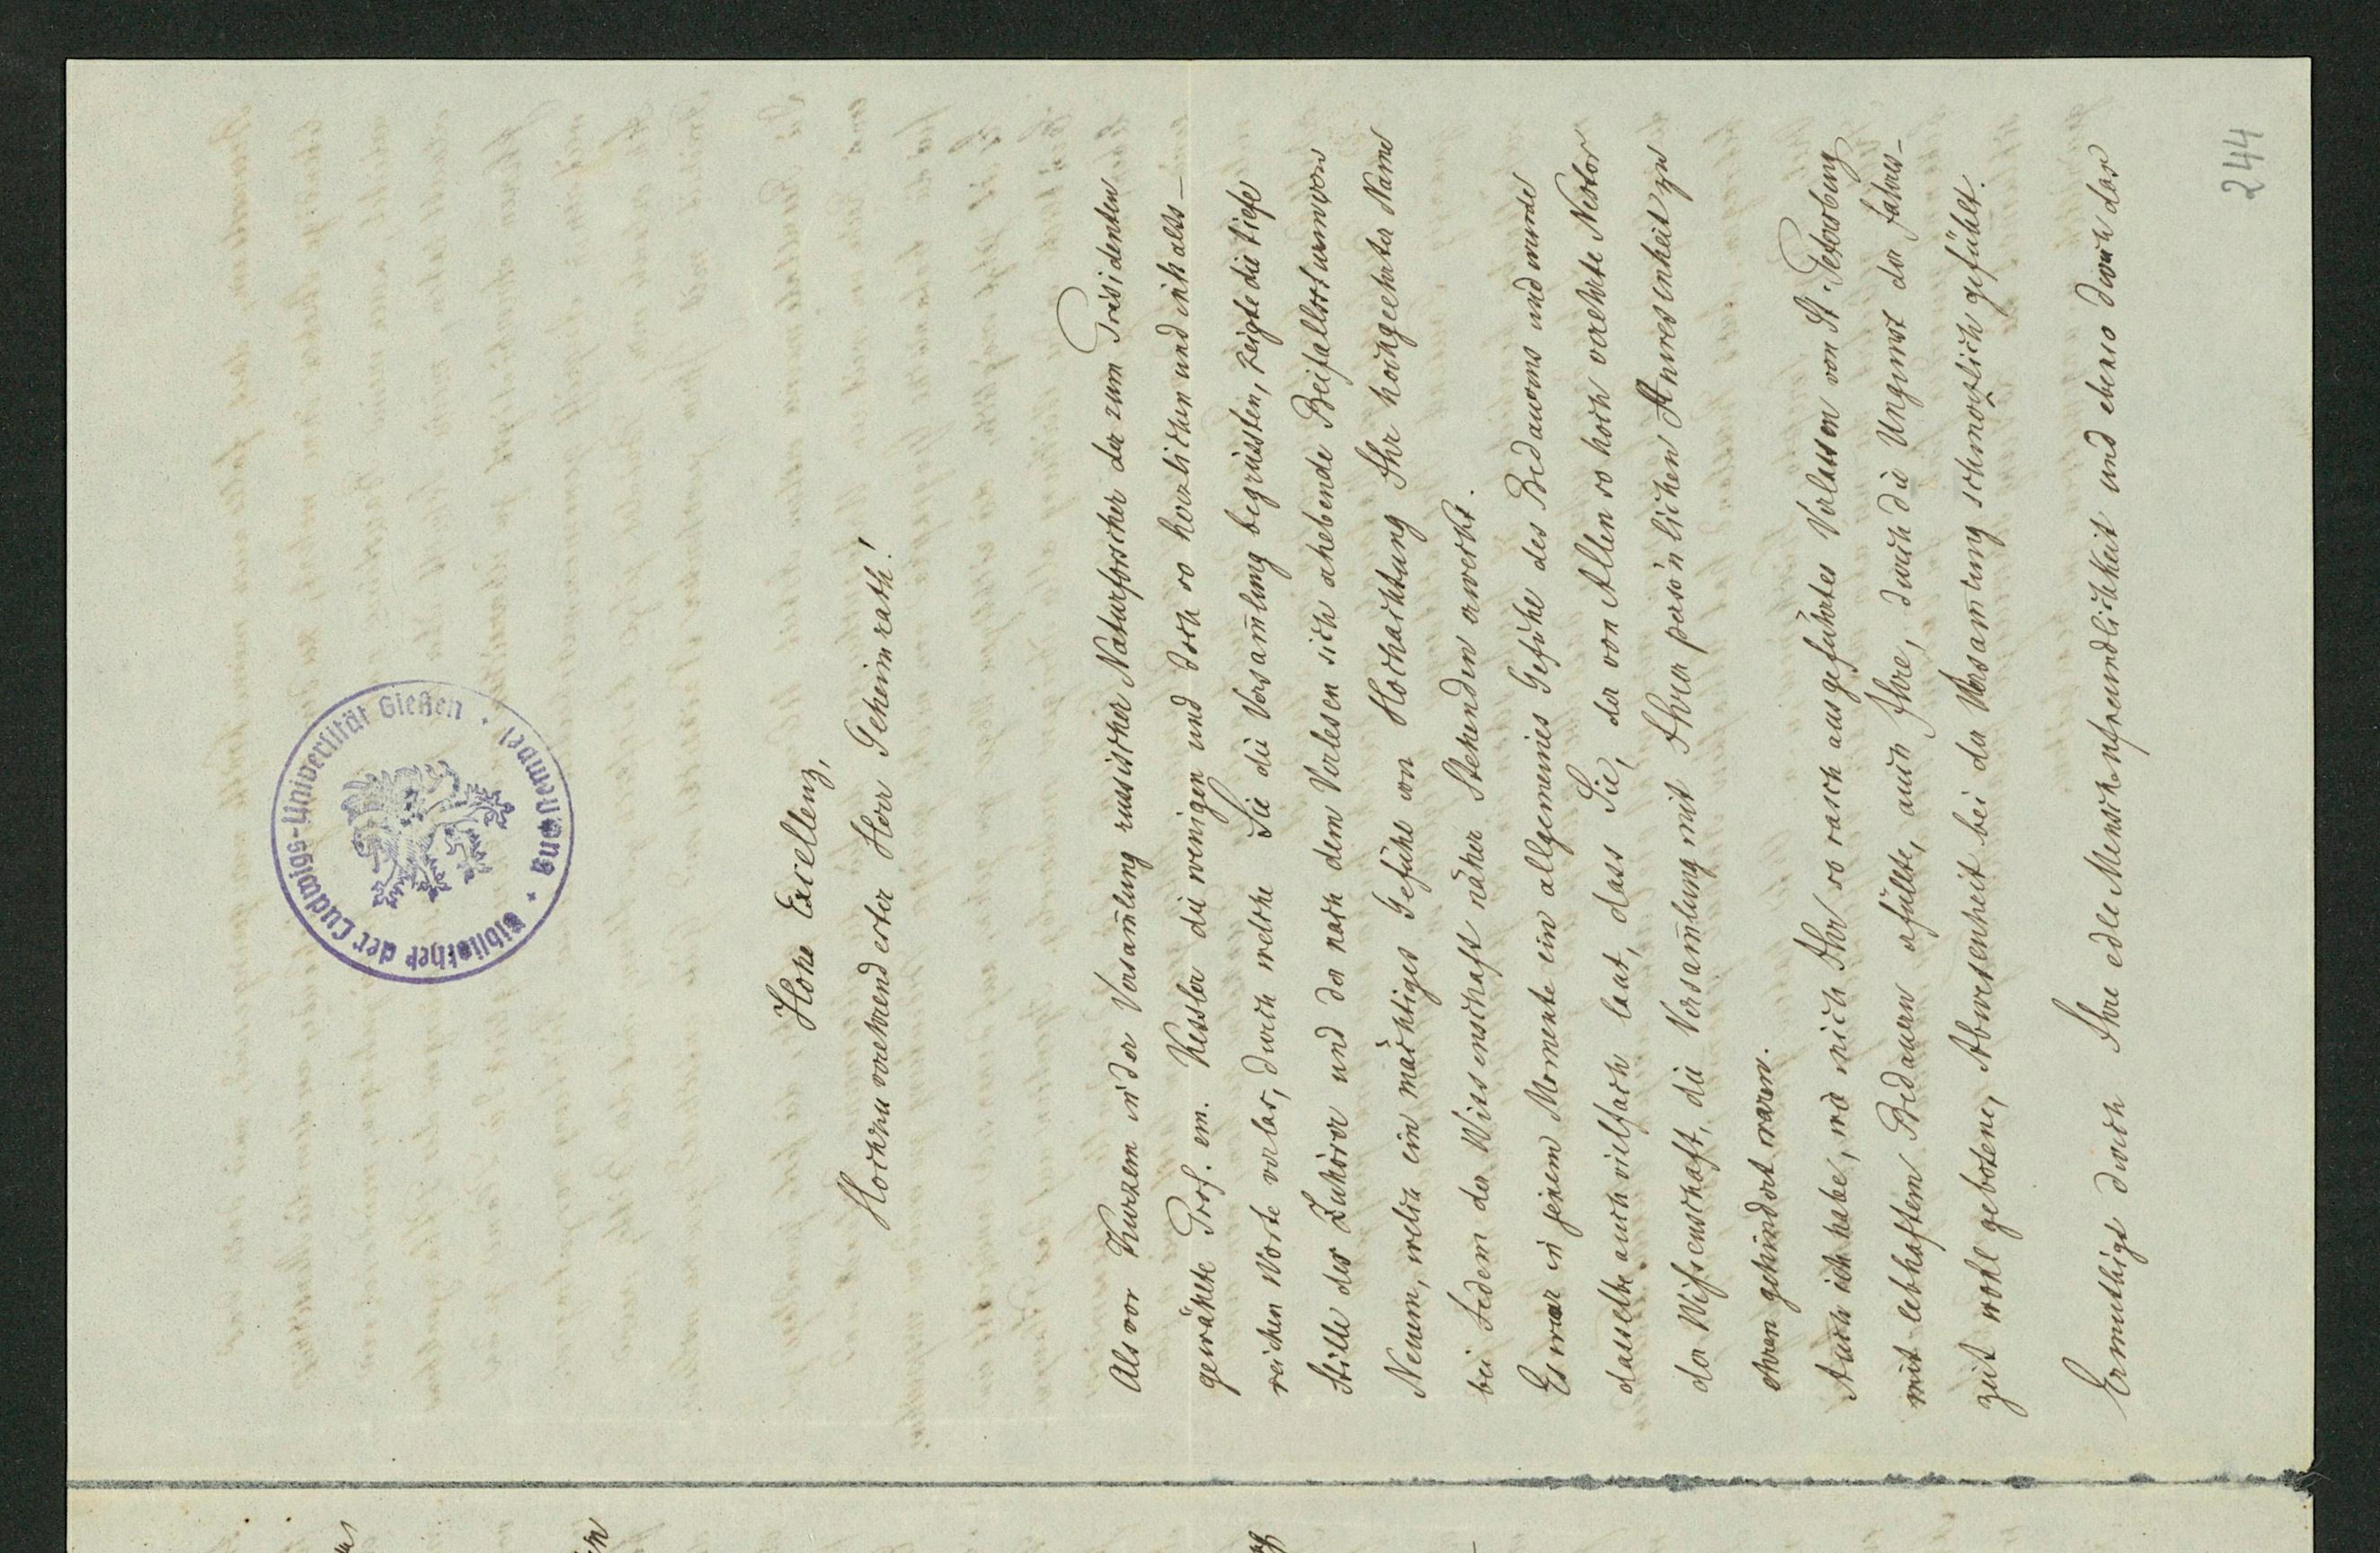 244
Bibliothek der Ludwigs-Universität Gießen · Austempel ·
Hohe Excellenz,
Hochzuverehrendster Herr Geheimrath!
Als vor Kurzem in der Versam̄lung russischer Naturforscher der zum Präsidenten
gewählte Prof. em. Kessler die wenigen und doch so herzlichen und inhalts-
reichen Worte vorlas, durch welche Sie die Versam̄lung begrüssten, zeigte die tiefe
Stille der Zuhörer und der nach dem Verlesen sich erhebende Beifallssturm von
Neuem, welch ein mächtiges Gefühl von Hochachtung Ihr hochgeehrter Name
bei Jedem der Wissenschaft näher Stehenden erweckt.
Es war in jenem Momente ein allgemeines Gefühl des Bedauerns und wurde
dasselbe auch vielfach laut, dass Sie, der von Allen so hoch verehrte Nestor
der Wissenschaft, die Versam̄lung mit Ihrer persönlichen Anwesenheit zu
ehren gehindert waren.
Auch ich habe, wie mich Ihr so rasch ausgeführtes Verlassen von St. Petersburg
mit lebhaftem Bedauern erfüllte, auch Ihre, durch die Ungunst der Jahres-
zeit wohl gebotene, Abwesenheit bei der Versam̄lung schmerzlich gefühlt.
Ermuthigt durch Ihre edle Menschenfreundlichkeit und ebenso durch das